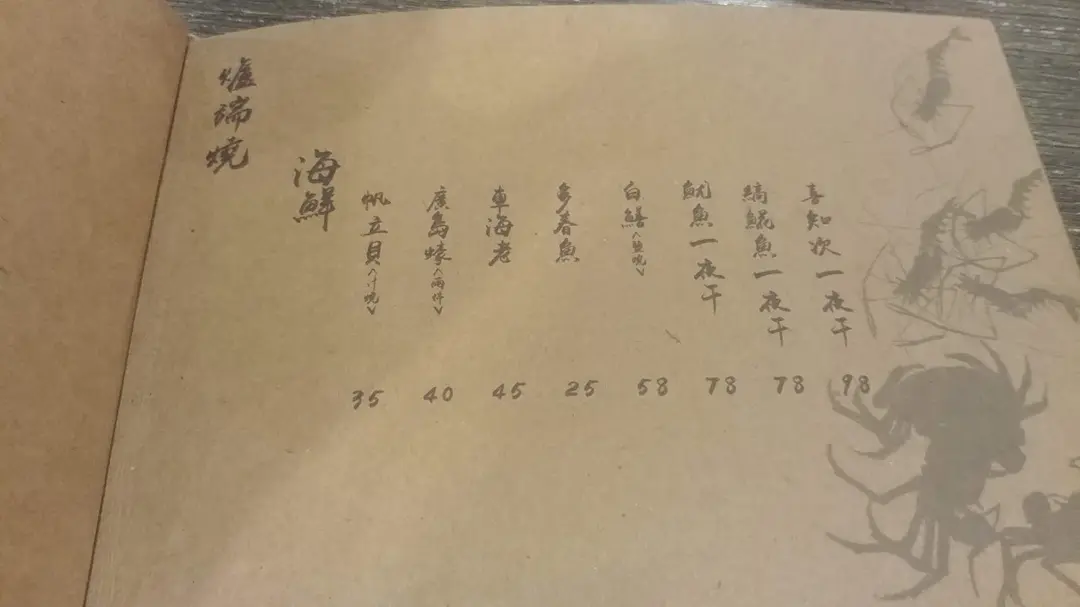 爐端燒
海鮮
帆立貝<汁燒> 35
廣島蠔<兩件> 40
車海老 45
多春魚 25
白鱔<鹽燒> 58
魷魚一夜干 78
縞鯤魚一夜干 78
喜知次一夜干 98